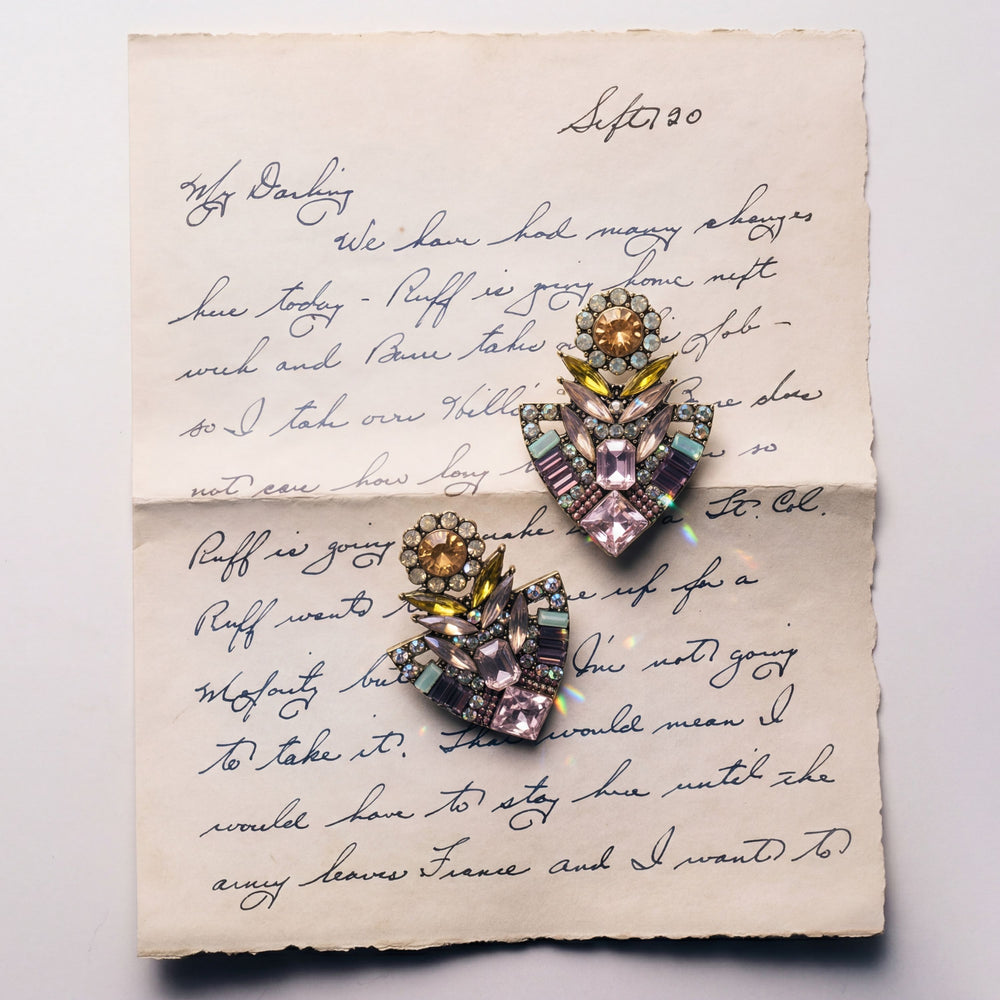 Sept 20
My Darling
We have had many changes
here today - Ruff is going home next
week and Bane takes job -
so I take over does
not care how long so
Ruff is going make a Lt. Col.
Ruff wants me up for a
Majority but I'm not going
to take it. That would mean I
would have to stay here until the
army leaves France and I want to